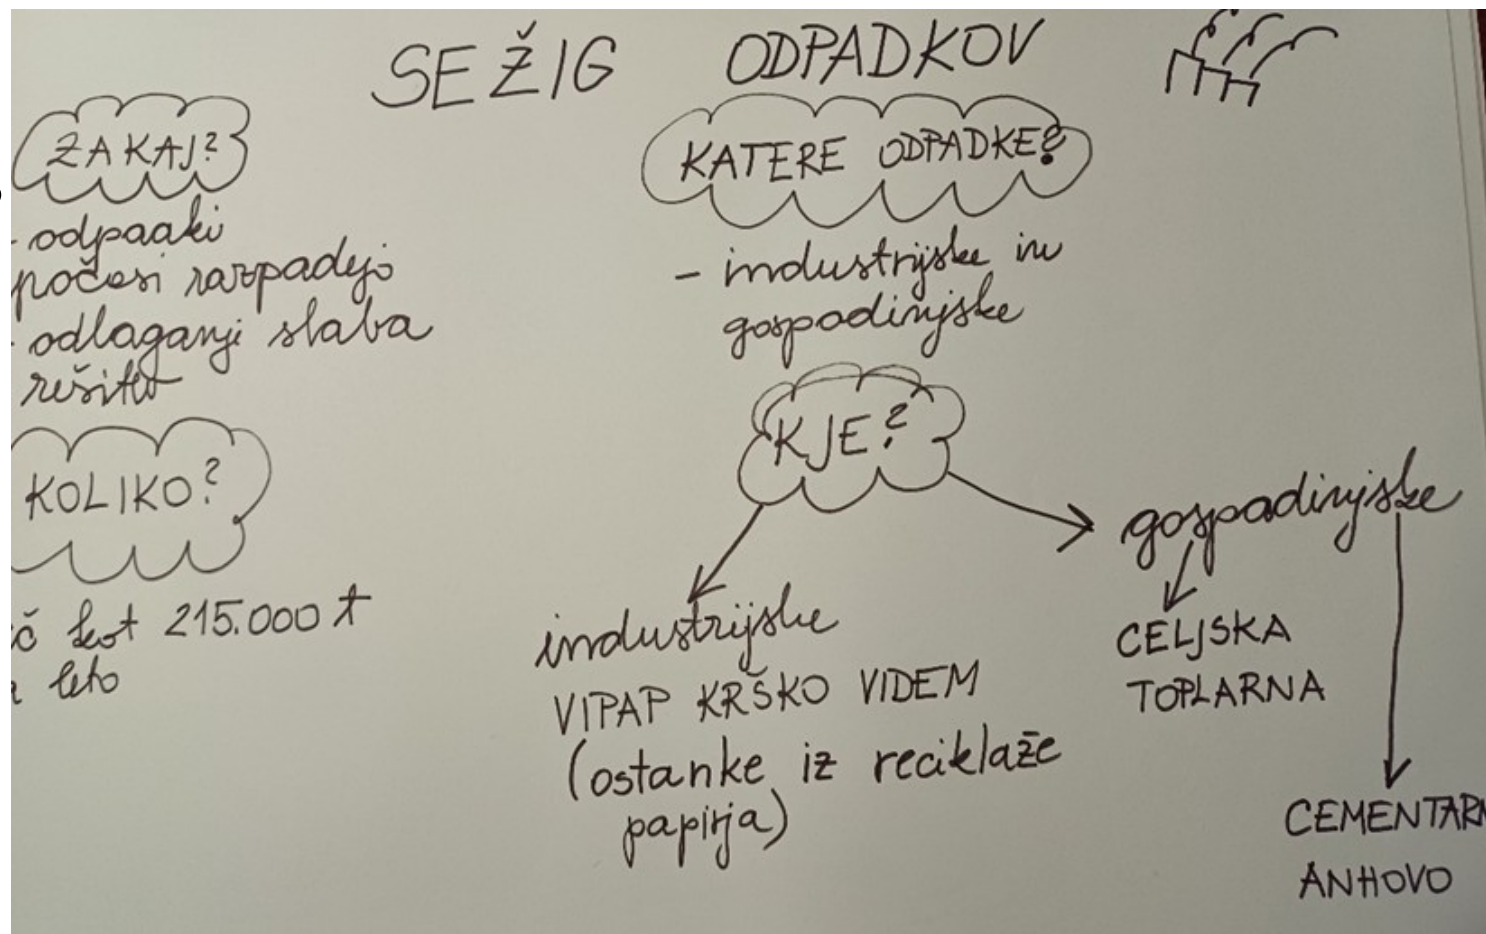 SEŽIG ODPADKOV
ZAKAJ?
- odpadki
počasi razpadejo
- odlaganji slaba
rešitev
KOLIKO?
č kot 215.000 t
leto
KATERE ODPADKE?
- industrijske in
gospodinjske
KJE?
industrijske
VIPAP KRŠKO VIDEM
(ostanke iz reciklaže
papirja)
gospodinjske
CELJSKA
TOPLARNA
CEMENTARN
ANHOVO